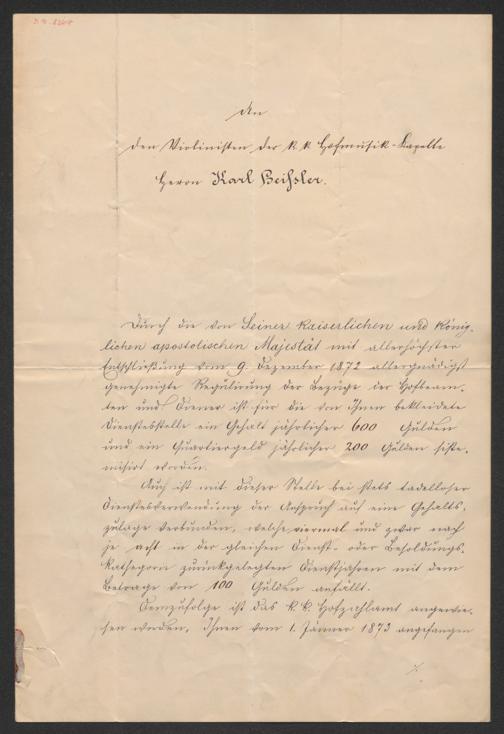 An
den Violinisten der k. k. Hofmusik-Kapelle
Herrn Karl Heißler.
Durch die von Seiner kaiserlichen und könig-
lichen apostolischen Majestät mit allerhöchster
Entschließung vom 9. Dezember 1872 allergnädigst
genehmigte Regulirung der Bezüge der Hofbeam-
ten und Diener ist für die von Ihnen bekleidete
Dienstesstelle ein Gehalt jährlicher 600 Gulden
und ein Quartiergeld jährlicher 200 Gulden siste-
misirt worden.
Auch ist mit dieser Stelle bei stets tadelloser
Dienstesverwendung der Anspruch auf eine Gehalts-
zulage verbunden, welche viermal und zwar nach
je acht in der gleichen Dienst- oder Besoldungs-
kathegorie zurückgelegten Dienstjahren mit dem
Betrage von 100 Gulden anfällt.
Demzufolge ist das k. k. Hofzahlamt angewie-
sen worden, Ihnen vom 1. Jänner 1873 angefangen